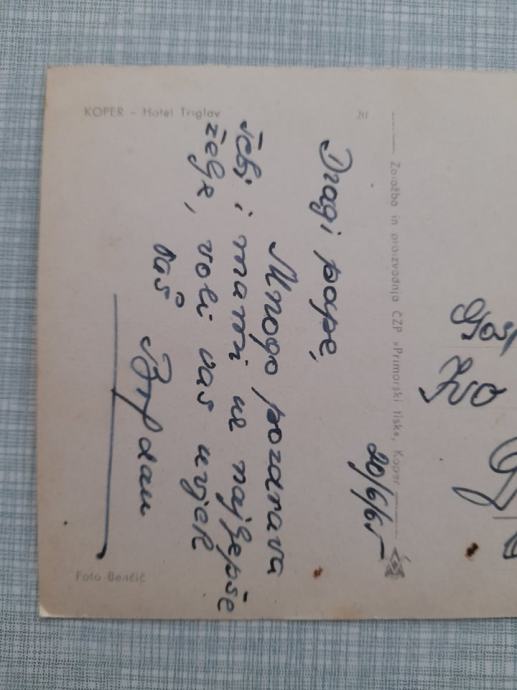 KOPER – Hotel Triglav
20/6/65
Dragi papa,
Mnogo pozdrava
tebi i mami uz najljepše
želje, voli vas uvjek
vaš Bogdan
Založba in proizvodnja ČZP »Primorski tisk«, Koper
Foto Benčič
Ivo